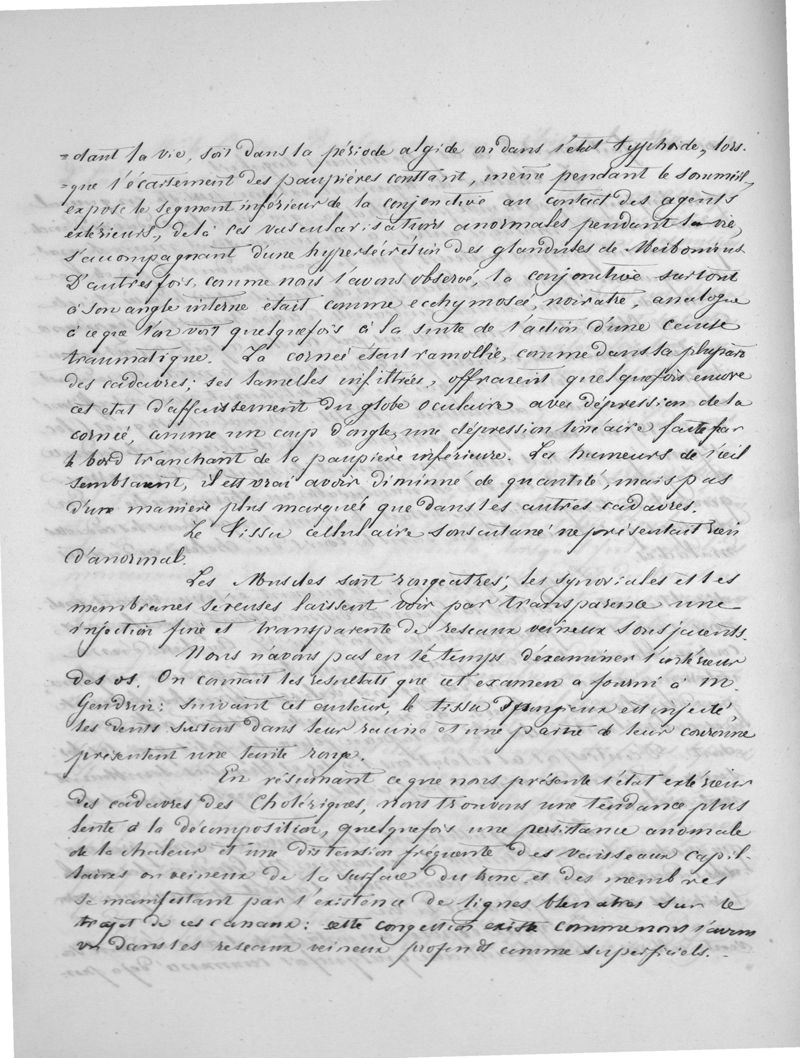 =dant la vie, soit dans la période algide ou dans l'état typhoide, lors-
=que l'écartement des paupières constant, même pendant le sommeil,
expose le segment inférieur de la conjonctive au contact des agents
extérieurs, de là ces vascularisations anormales pendant la vie,
s'accompagnant d'une hypersécrésion des glandules de Meibomius.
D'autres fois, comme nous l'avons observé, la conjonctive surtout
à son angle interne était comme echymosée, noirâtre, analogue
à ce que l'on voit quelquefois à la suite de l'action d'une cause
traumatique. La cornée était ramollie, comme dans la plupart
des cadavres; ses lamelles infiltrées, offraient quelquefois encore
cet état d'affaissement du globe oculaire avec dépression de la
cornée, comme un coup d'ongle, une dépression linéaire faite par
le bord tranchant de la paupière inférieure. Les humeurs de l'œil
semblaient, il est vrai avoir diminué de quantité, mais pas
d'une manière plus marquée que dans les autres cadavres.
Le Tissu cellulaire souscutané ne présentait rien
d'anormal.
Les Muscles sont rougeâtres; les synoviales et les
membranes séreuses laissent voir par transparence une
injection fine et transparente de reseaux veineux sousjacents.
Nous n'avons pas eu le temps d'examiner l'intérieur
des os. On connait les résultats que cet examen a fourni à M.
Gendrin: suivant cet auteur, le tissu spongieux est injecté,
les dents surtout dans leur racine et une partie de leur couronne
présentent une teinte rouge.
En résumant ce que nous présente l'état extérieur
des cadavres des Cholériques, nous trouvons une tendance plus
lente à la décomposition, quelquefois une persistance anomale
de la chaleur et une distension fréquente des vaisseaux capil-
laires ou veineux de la surface du tronc et des membres
se manifestant par l'existence de lignes bleuatres sur le
trajet de ces canaux: cette congestion existe comme nous l'avons
vu dans les reseaux veineux profonds comme superficiels.